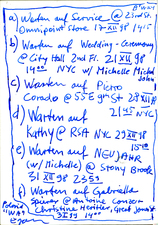 B'WAY
a) Warten auf Service @ 23rd St.
Omnipoint Store 17 XII 98 1415
b) Warten auf Wedding-Ceremony
@ City Hall 2nd Fl. 21 XII 98
1400 NYC w/ Michelle Michel John
c) Warten auf Pietro
Corado @ 55 E 9th St 28 XII
2145 NYC
d) Warten auf
Kathy @ RSA NYC 29 XII 98
1500
e) Warten auf NEUJAHR
(w/ Michelle) @ Stony Brook
31 XII 98 2359
f) Warten auf Gabriella
Spierer @ Antoine Concern
Christine, Heritier, Great Jones St
3 I 99 14